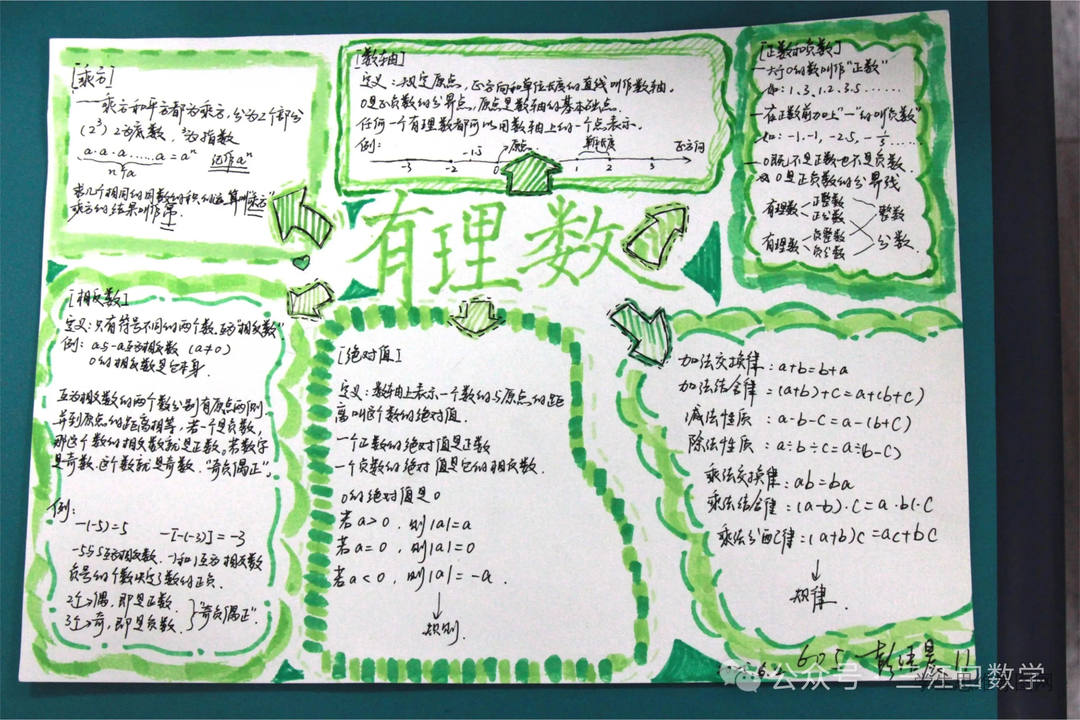 [乘方]
一 乘方和平方都为乘方，分为2个部分
(2³) 2为底数，³为指数
a·a·a……a=aⁿ 记作aⁿ
n个a
求几个相同的因数的积的运算叫"乘方"
乘方的结果叫作幂
[数轴]
定义：规定原点，正方向和单位长度的直线叫作数轴。
0是正负数的分界点，原点是数轴的基本础点.
任何一个有理数都可以用数轴上的一个点表示.
例：
-1.5 原点 单位长度 正方向
-3 -2 0 1 2 3
[正数和负数]
一 大于0的数叫作"正数"
如：1.3,1.2.3.5……
一 在正数前加上"-"的叫负数"
如：-1,-1, -2.5, -1/3……
一 0既不是正数也不是负数.
0是正负数的分界线
有理数 正整数 整数
正分数
有理数 负整数 分数
负分数
有理数
[相反数]
定义：只有符号不同的两个数,互为"相反数"
例：a与-a互为相反数 (a≠0)
0的相反数是它本身.
互为相反数的两个数分别有原点两侧
并到原点的距离相等，若一个是负数，
那这个数的相反数就是正数。若数字
是奇数.这个数就是奇数."奇负偶正".
例：
-(-5)=5 -[-(-3)]=-3
-5与5互为相反数. -1和1互为相反数
负号的个数决定了数的正负
2个→偶，即是正数.
3个→奇，即是负数. "奇负偶正"
[绝对值]
定义：数轴上表示一个数的与原点的距
离叫这个数的绝对值.
一个正数的绝对值是正数
一个负数的绝对值是它的相反数.
0的绝对值是0
若a>0，则|a|=a
若a=0，则|a|=0
若a<0，则|a|=-a.
规则.
加法交换律：a+b=b+a
加法结合律：(a+b)+c=a+(b+c)
减法性质：a-b-c=a-(b+c)
除法性质：a÷b÷c=a÷(b-c)
乘法交换律：ab=ba
乘法结合律：(a-b)·c=a·b(·c
乘法分配律：(a+b)c=ac+bc
规律.
605 11
公众号·三江口数学